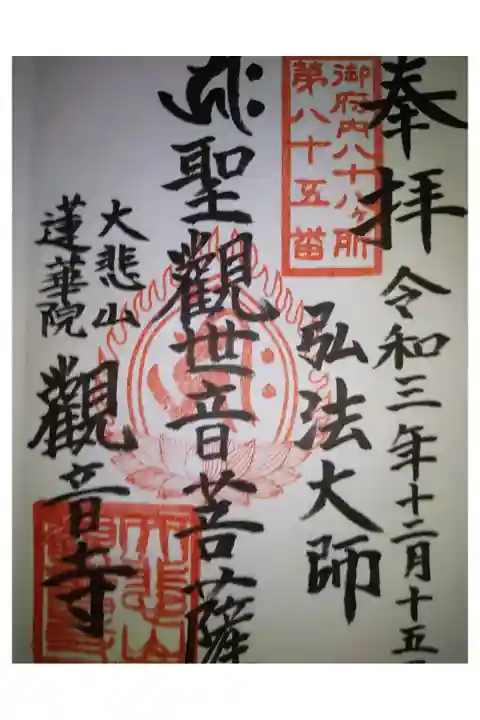 奉拝
令和三年十二月十五日
御府内八十八ヶ所
第八十五番
弘法大師
聖觀世音菩薩
大悲山
蓮華院
觀音寺